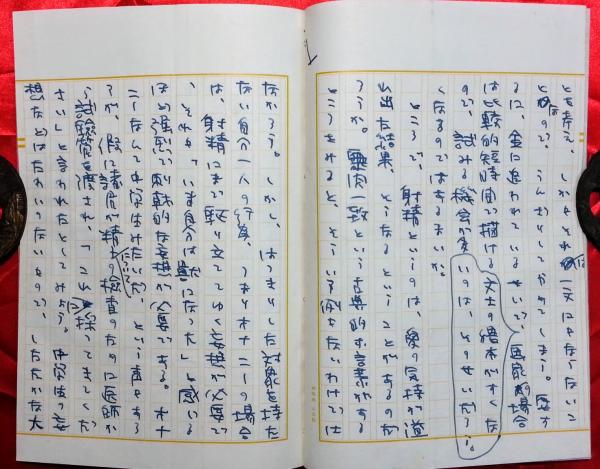 とも考え、しかもそれは一文にもならないこ
となので、うんざりしてやめてしまう。要す
るに、金に追われているせいで、画家の場合
は比較的短時間で描ける
ので、試みる機会が多
文士の春本がすくな
いのは、そのせいだろう。
くなるのではあるまいか。
ところで、射精というのは、愛の気持が道
い出た結果、そうなるということがあるのか
ろうか。霊肉一致という古典的な言葉がある
ところをみると、そういう例もないわけでは
なかろう。しかし、はっきりした対象を持た
ない自分一人の行為、つまりオナニーの場合
は、射精にまで駆り立ててゆく妄想が必要で
、それも「いま自分は
になった」と感じる
ほど強烈で刺戟的な妄想が必要である。オナ
ニーなんて中学生はだ、という声もあろ
うが、仮に諸君が精子の検査のために医師か
ら試験管を渡され、「これに採ってきてくだ
さい」と言われたとしてみたまえ。中途半
想などはたわいのないもので、したたかな大